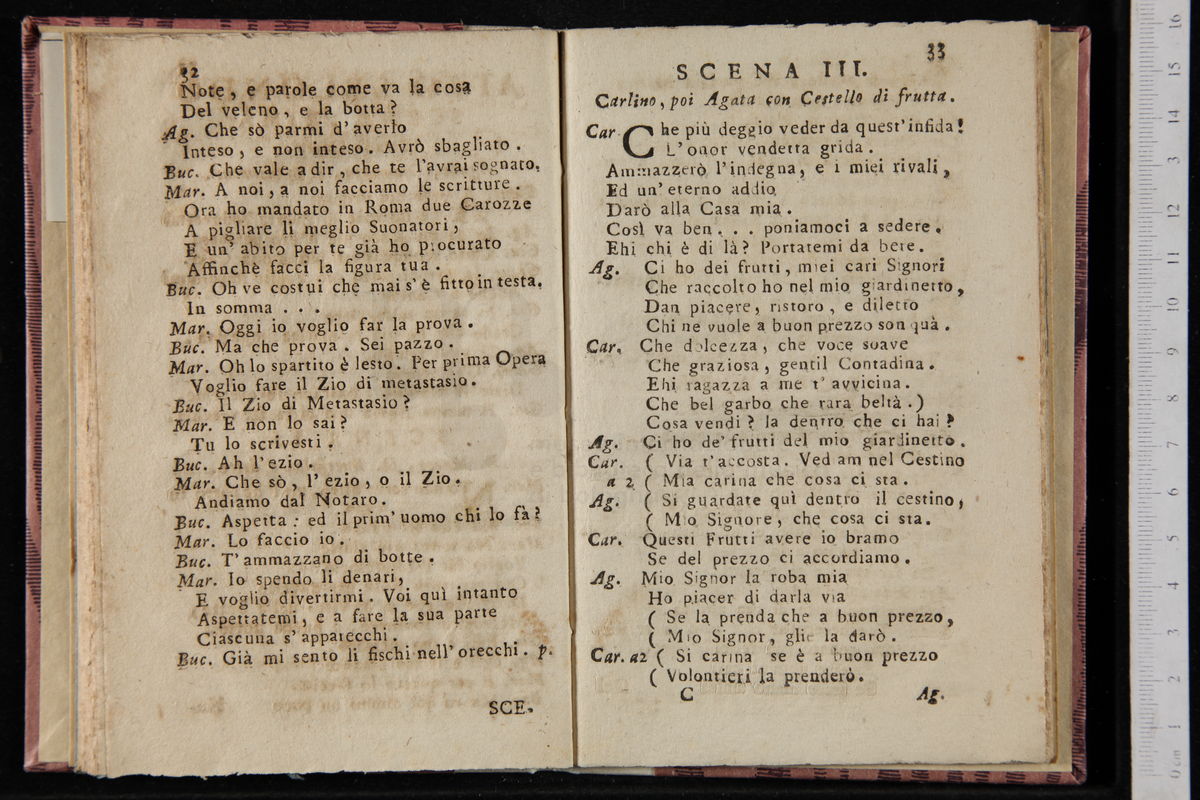 32
Note, e parole come va la cosa
Del veleno, e la botta?
Ag. Che sò parmi d'averlo
Inteso, e non inteso. Avrò sbagliato.
Buc. Che vale a dir, che te l'avrai sognato.
Mar. A noi, a noi facciamo le scritture.
Ora ho mandato in Roma due Carozze
A pigliare li meglio Suonatori,
E un' abito per te già ho procurato
Affinchè facci la figura tua.
Buc. Oh ve costui che mai s'è fitto in testa.
In somma . . .
Mar. Oggi io voglio far la prova.
Buc. Ma che prova. Sei pazzo.
Mar. Oh lo spartito è lesto. Per prima Opera
Voglio fare il Zio di metastasio.
Buc. Il Zio di Metastasio?
Mar. E non lo sai?
Tu lo scrivesti.
Buc. Ah l'ezio.
Mar. Che sò, l'ezio, o il Zio.
Andiamo dal Notaro.
Buc. Aspetta: ed il prim'uomo chi lo fà?
Mar. Lo faccio io.
Buc. T'ammazzano di botte.
Mar. Io spendo li denari,
E voglio divertirmi. Voi quì intanto
Aspettatemi, e a fare la sua parte
Ciascuna s'apparecchi.
Buc. Già mi sento li fischi nell'orecchi. p.
SCE.
33
SCENA III.
Carlino, poi Agata con Cestello di frutta.
Car. Che più deggio veder da quest'infida!
L'onor vendetta grida.
Ammazzerò l'indegna, e i miei rivali,
Ed un'eterno addio
Darò alla Casa mia.
Così va ben. . . poniamoci a sedere.
Ehi chi è di là? Portatemi da bere.
Ag. Ci ho dei frutti, miei cari Signori
Che raccolto ho nel mio giardinetto,
Dan piacere, ristoro, e diletto
Chi ne vuole a buon prezzo son quà.
Car. Che dolcezza, che voce soave
Che graziosa, gentil Contadina.
Ehi ragazza a me t'avvicina.
Che bel garbo che rara beltà.)
Cosa vendi? la dentro che ci hai?
Ag. Ci ho de'frutti del mio giardinetto.
Car. ( Via t'accosta. Vediam nel Cestino
a 2 ( Mia carina che cosa ci sta.
Ag. ( Si guardate quì dentro il cestino,
( Mio Signore, che cosa ci sta.
Car. Questi Frutti avere io bramo
Se del prezzo ci accordiamo.
Ag. Mio Signor la roba mia
Ho piacer di darla via
( Se la prenda che a buon prezzo,
( Mio Signor, glie la darò.
Car. a2 ( Si carina se è a buon prezzo
( Volontieri la prenderò.
C Ag.